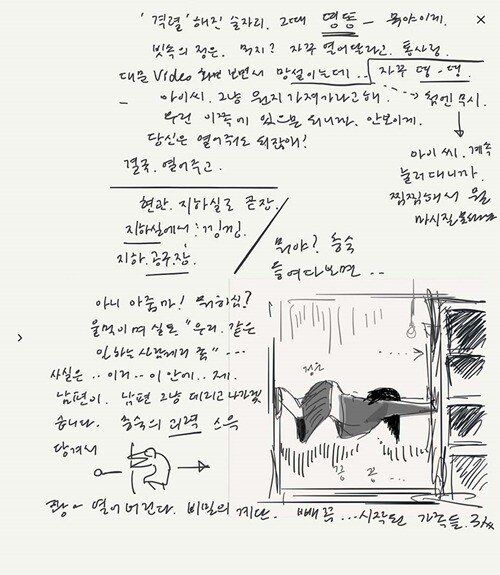 '격렬'해진 술자리. 그때 띵똥 - 뭐야이게.
빗속의 정은. 뭐지? 자꾸 열어달라고. 통사정.
대문 Video 화면 보면서 망설이는데.. 자꾸 띵-띵
아이씨. 그냥 뭔지 가져가라고해. 첨엔 무시.
우린 이쪽에 있으면 되니까. 안보이게.
당신은 열어줘도 되잖아!
결국. 열어주고.
아이 씨. 계속
눌러대니까.
찜찜해서 뭘
마시질
현관. 지하실로 곧장.
지하실에서 : 낑낑.
지하.
뭐야? 충숙
들여다보면 ..
아니 아줌마! 뭐하심?
울먹이며 실토 "우리. 같은
일하는 사람끼리
사실은 .. 이거 .. 이 안에.. 제.
남편이. 남편 그냥 데리고 나가겠
습니다. 충숙의 괴력
당겨서
정은
끙 끙 ..
쾅 - 열어버린다. 비밀의 계단. 빼꼭 ... 시작된 가족들.